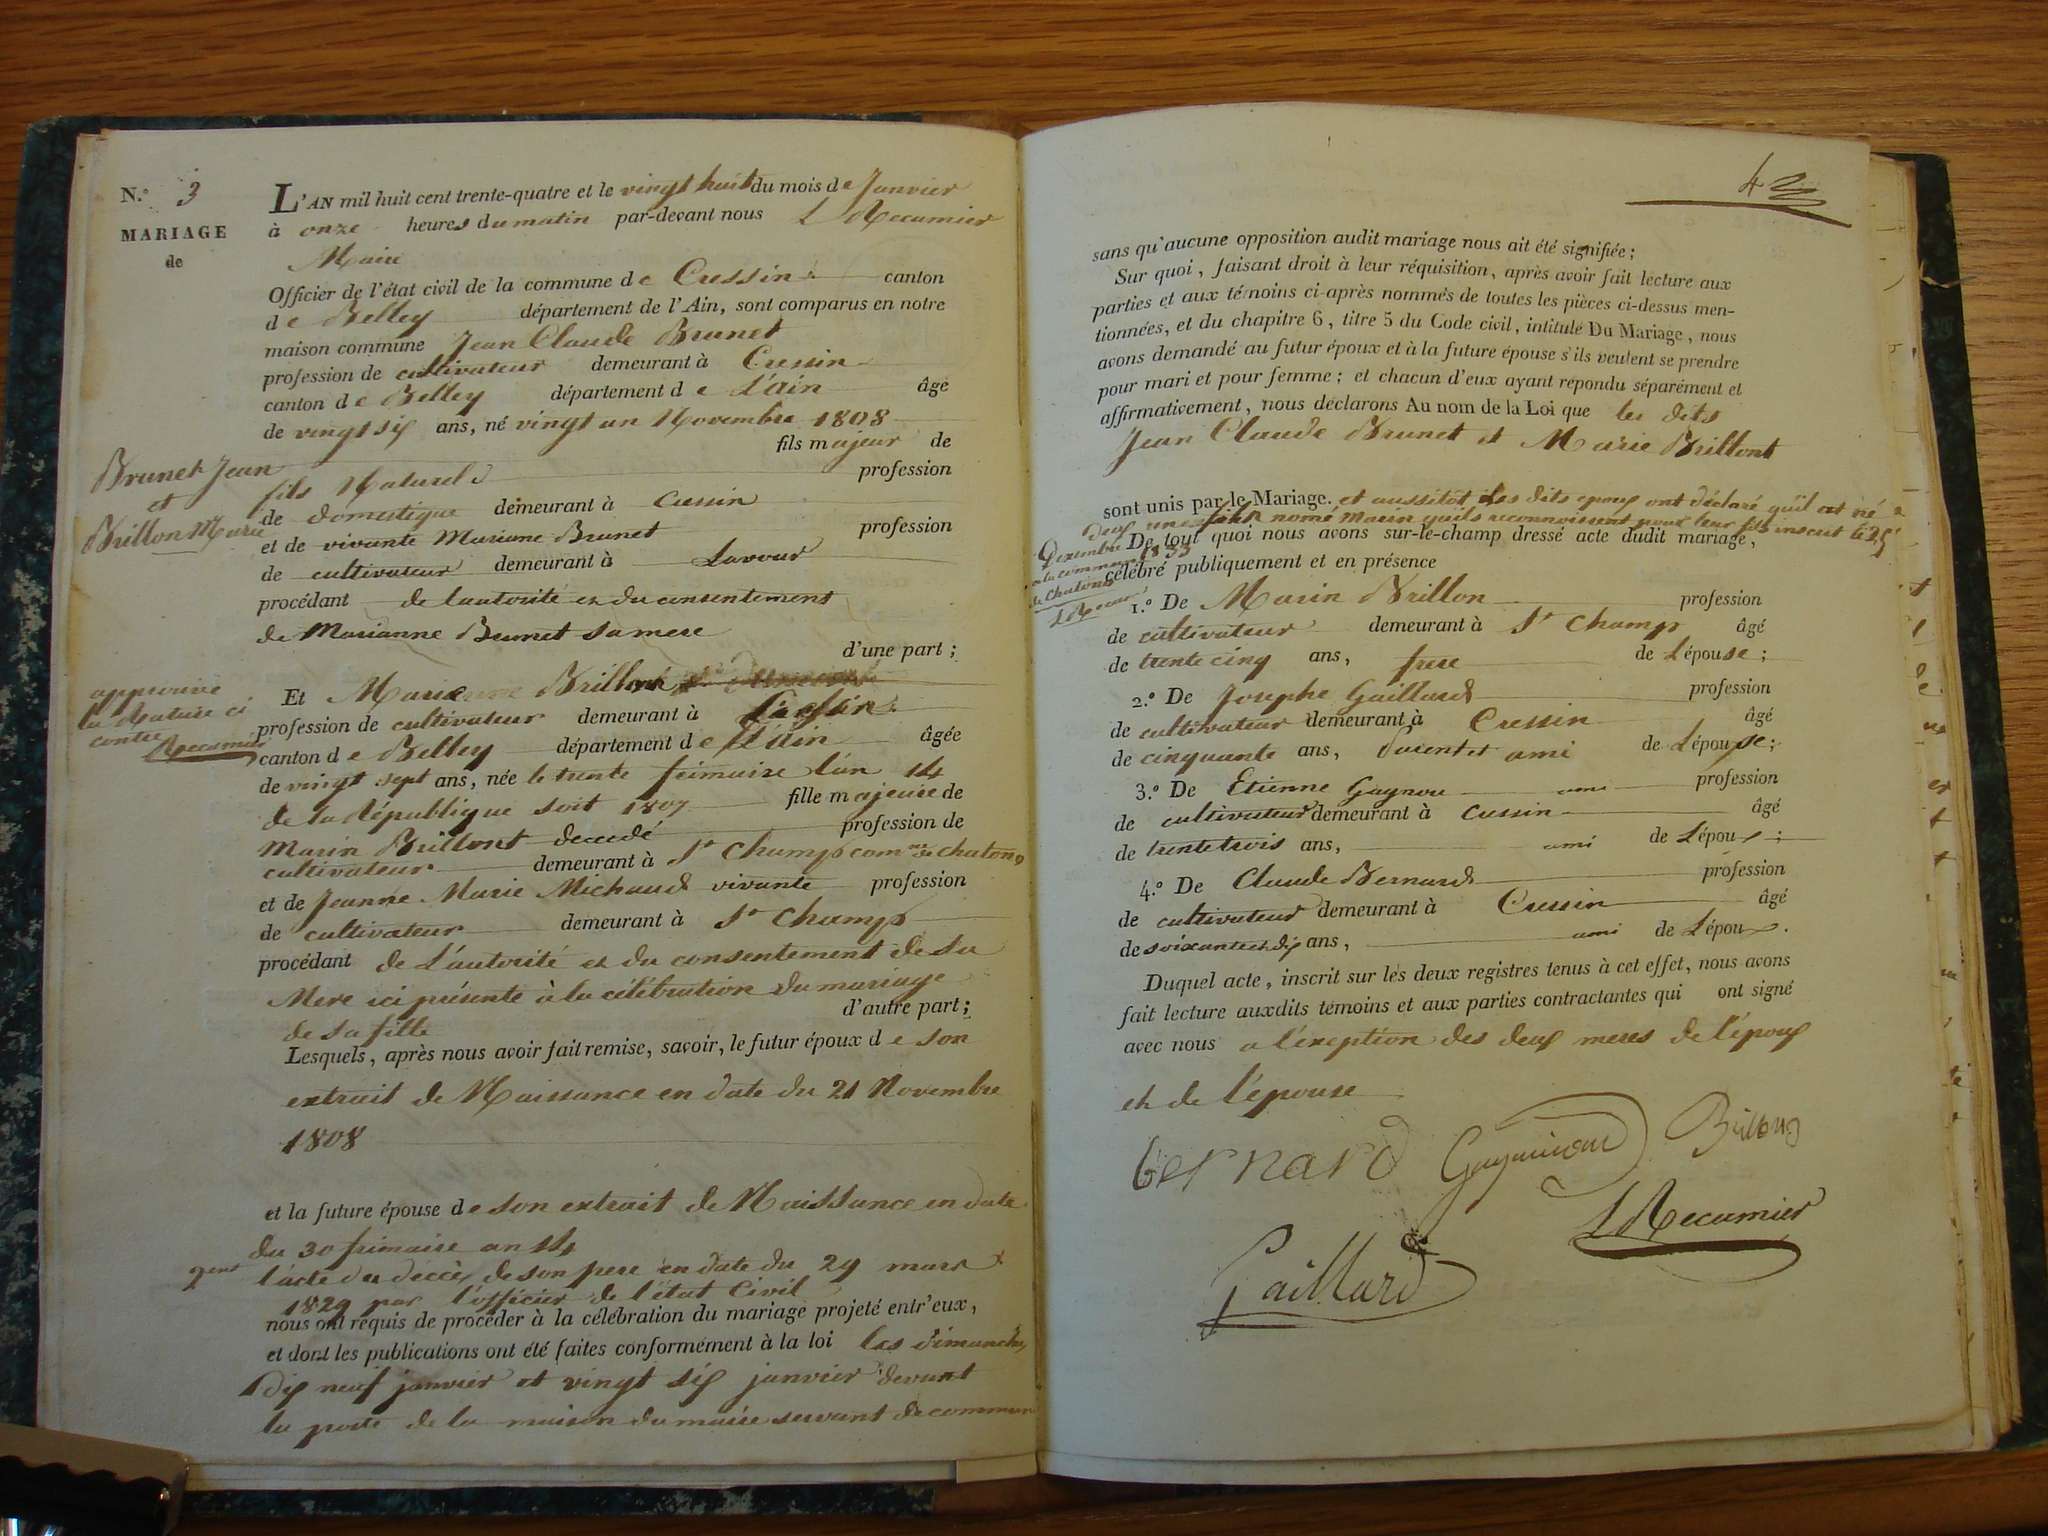 N.º 3
MARIAGE
de
Brunet Jean
et
Brillon Marie
approuvé
la Rature ci
contre
Recumier
L'AN mil huit cent trente-quatre et le vingt huit du mois de Janvier
à onze heures du matin par-devant nous L Recumier
Maire
Officier de l'état civil de la commune de Cressin canton
de Belley département de l'Ain, sont comparus en notre
maison commune Jean Claude Brunet
profession de cultivateur demeurant à Cressin
canton de Belley département de L'ain âgé
de vingt six ans, né vingt un Novembre 1808
fils majeur de
fils Naturel profession
de domestique demeurant à Cressin
et de vivante Mariane Brunet profession
de cultivateur demeurant à Lavour
procédant de lautorité et du consentement
de Marianne Brunet sa mere
d'une part ;
Et Marie Brillont
profession de cultivateur demeurant à Cressin
canton de Belley département de L'ain âgée
de vingt sept ans, née le trente frimaire l'an 14
de la République soit 1807 fille majeure de
Marin Brillont decedé profession de
cultivateur demeurant à St Champ com.ne de chatono
et de Jeanne Marie Michaud vivante profession
de cultivateur demeurant à St Champ
procédant de L'autorité et du consentement de sa
Mere ici présente à la célébration du mariage
d'autre part ;
de sa fille
Lesquels, après nous avoir fait remise, savoir, le futur époux de son
extrait de Naissance en date du 21 Novembre
1808
et la future épouse de son extrait de Naissance en date
du 30 frimaire an 14
2ent l'acte du deccès de son pere en date du 29 mars
1829 par l'officier de l'état Civil
nous ont requis de procéder à la célébration du mariage projeté entr'eux,
et dont les publications ont été faites conformément à la loi les dimanches
Dix neuf janvier et vingt six janvier devant
la porte de la maison du maire servant de commune
4
sans qu'aucune opposition audit mariage nous ait été signifiée ;
Sur quoi, faisant droit à leur réquisition, après avoir fait lecture aux
parties et aux témoins ci-après nommés de toutes les pièces ci-dessus men-
tionnées, et du chapitre 6, titre 5 du Code civil, intitulé Du Mariage, nous
avons demandé au futur époux et à la future épouse s'ils veulent se prendre
pour mari et pour femme ; et chacun d'eux ayant répondu séparément et
affirmativement, nous déclarons Au nom de la Loi que les dits
Jean Claude Brunet et Marie Brillont
sont unis par le Mariage. et aussitôt les dits epoux ont déclaré qu'il est né
deux un enfant nomé Marin quils reconnoissent pour leur fils inscrit le 25
Dexembre 1833
a la commune
de Chatono
L Recum
De tout quoi nous avons sur-le-champ dressé acte dudit mariage,
célébré publiquement et en présence
1.º De Marin Brillon profession
de cultivateur demeurant à St Champ âgé
de trente cinq ans, frere de Lépouse ;
2.º De Josephe Gaillard profession
de cultivateur demeurant à Cressin âgé
de cinquante ans, Parent et ami de Lépouse ;
3.º De Etienne Gagnou ami profession
de cultivateur demeurant à Cressin âgé
de trente trois ans, ami de Lépoux ;
4.º De Claude Bernard profession
de cultivateur demeurant à Cressin âgé
de soixante et dix ans, ami de Lépoux.
Duquel acte, inscrit sur les deux registres tenus à cet effet, nous avons
fait lecture auxdits témoins et aux parties contractantes qui ont signé
avec nous a l'éxeption des deux meres de l'époux
et de l'épouse
bernard Brillon
L Recumier
Gaillard